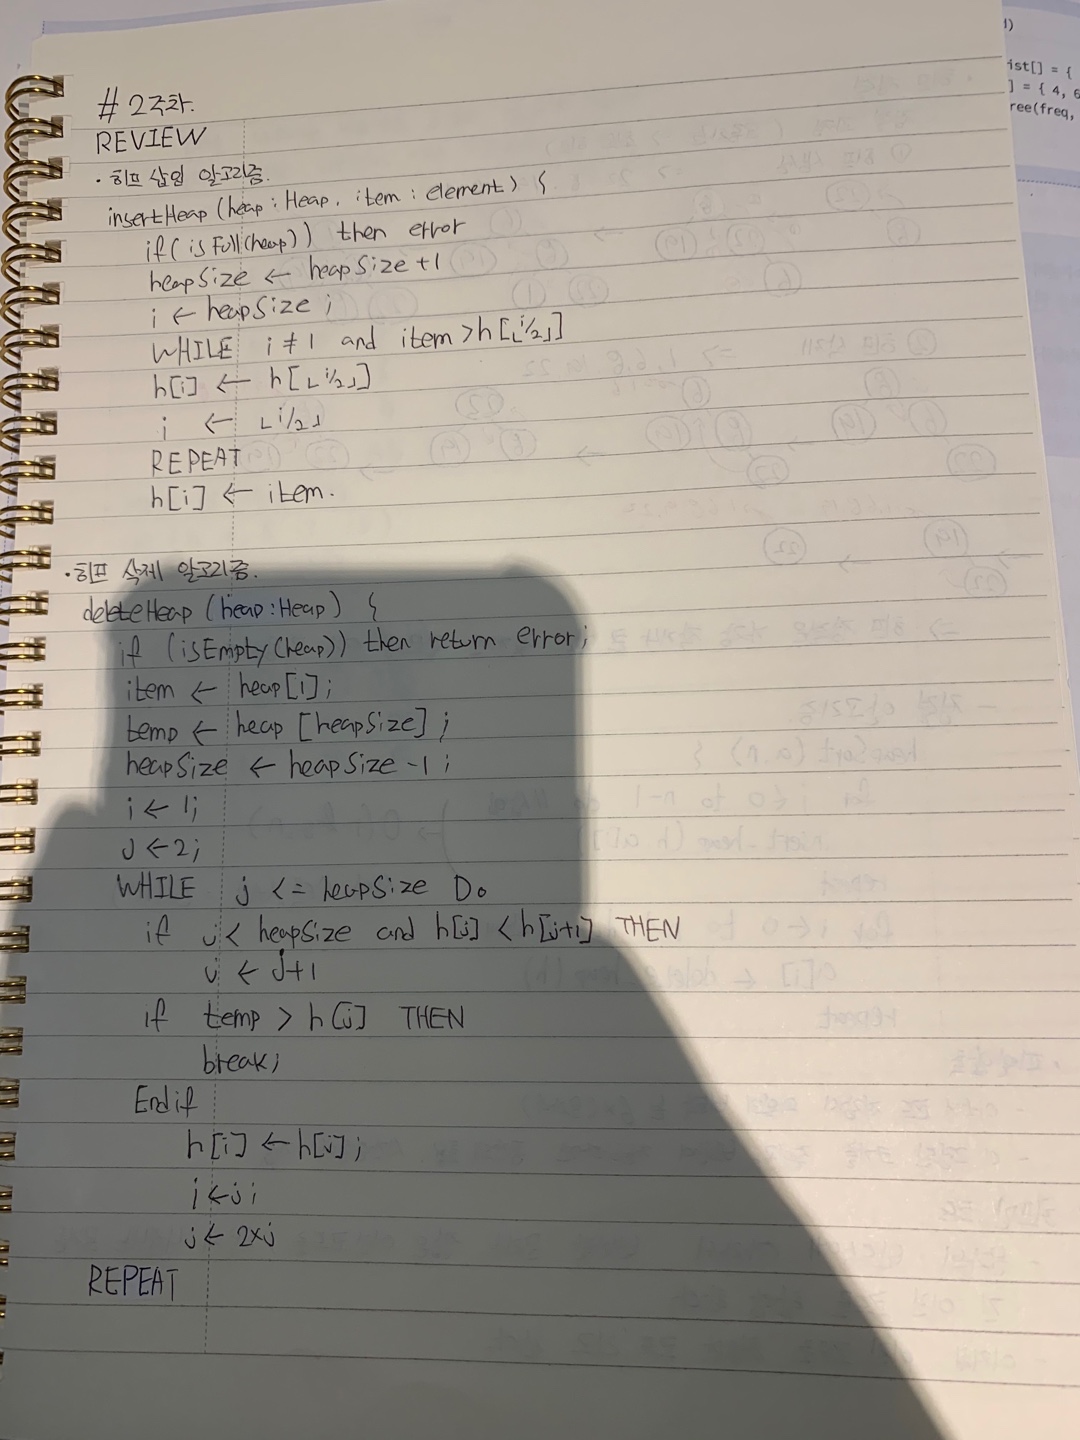 # 2주차.
REVIEW
· 히프 삽입 알고리즘.
insertHeap (heap : Heap, item : element) {
if (isFull(heap)) then error
heapSize ← heapSize +1
i ← heapSize ;
WHILE i ≠ 1 and item > h[⌊i/2⌋]
h[i] ← h[⌊i/2⌋]
i ← ⌊i/2⌋
REPEAT
h[i] ← item.
· 히프 삭제 알고리즘.
deleteHeap (heap : Heap) {
if (isEmpty(heap)) then return error;
item ← heap[1];
temp ← heap [heapSize] ;
heapSize ← heapSize -1 ;
i ← 1;
J ← 2;
WHILE j <= heapSize Do
if j < heapSize and h[j] < h[j+1] THEN
j ← j+1
if temp > h[j] THEN
break;
Endif
h[i] ← h[j] ;
i ← j ;
j ← 2xj
REPEAT
)
ist[] = {
] = { 4, 6
ree(freq,